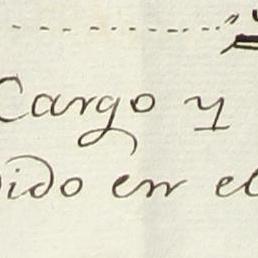 Cargo y
ido en el